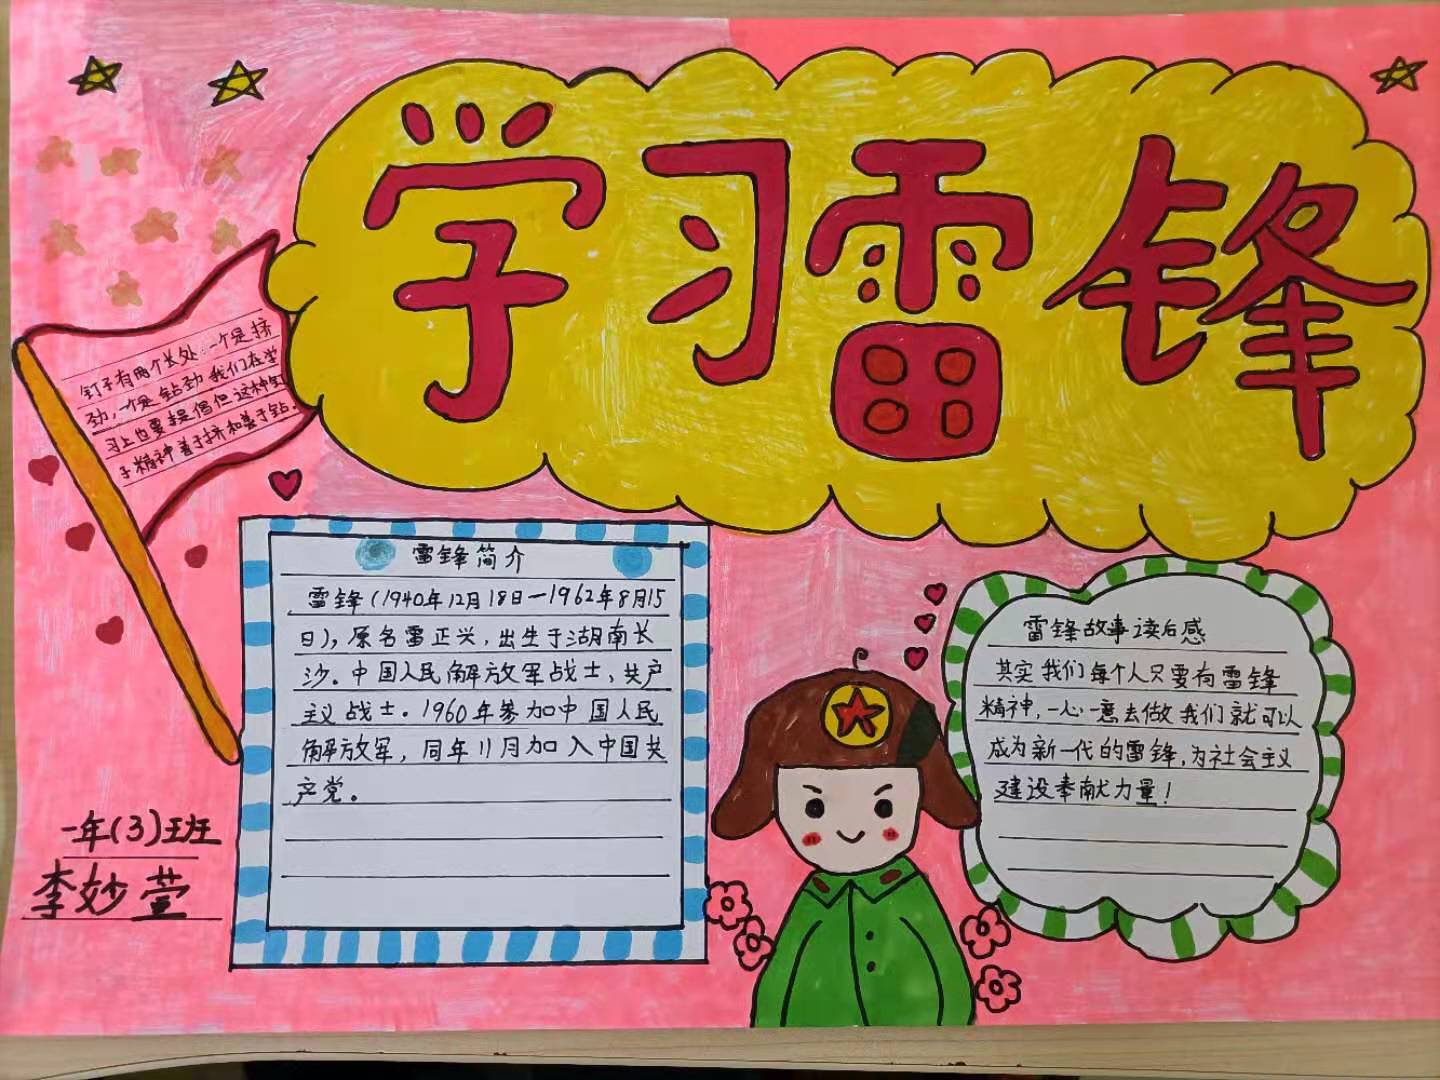 学习雷锋
钉子有两个长处：一个是挤
劲，一个是钻劲 我们在学
习上也要提倡但这种钉
子精神善于挤和善于钻。
雷锋简介
雷锋（1940年12月18日—1962年8月15
日），原名雷正兴，出生于湖南长
沙。中国人民解放军战士，共产
主义战士。1960年参加中国人民
解放军，同年11月加入中国共
产党。
雷锋故事读后感
其实我们每个人只要有雷锋
精神，一心一意去做 我们就可以
成为新一代的雷锋，为社会主义
建设奉献力量！
一年（3）班
李妙萱